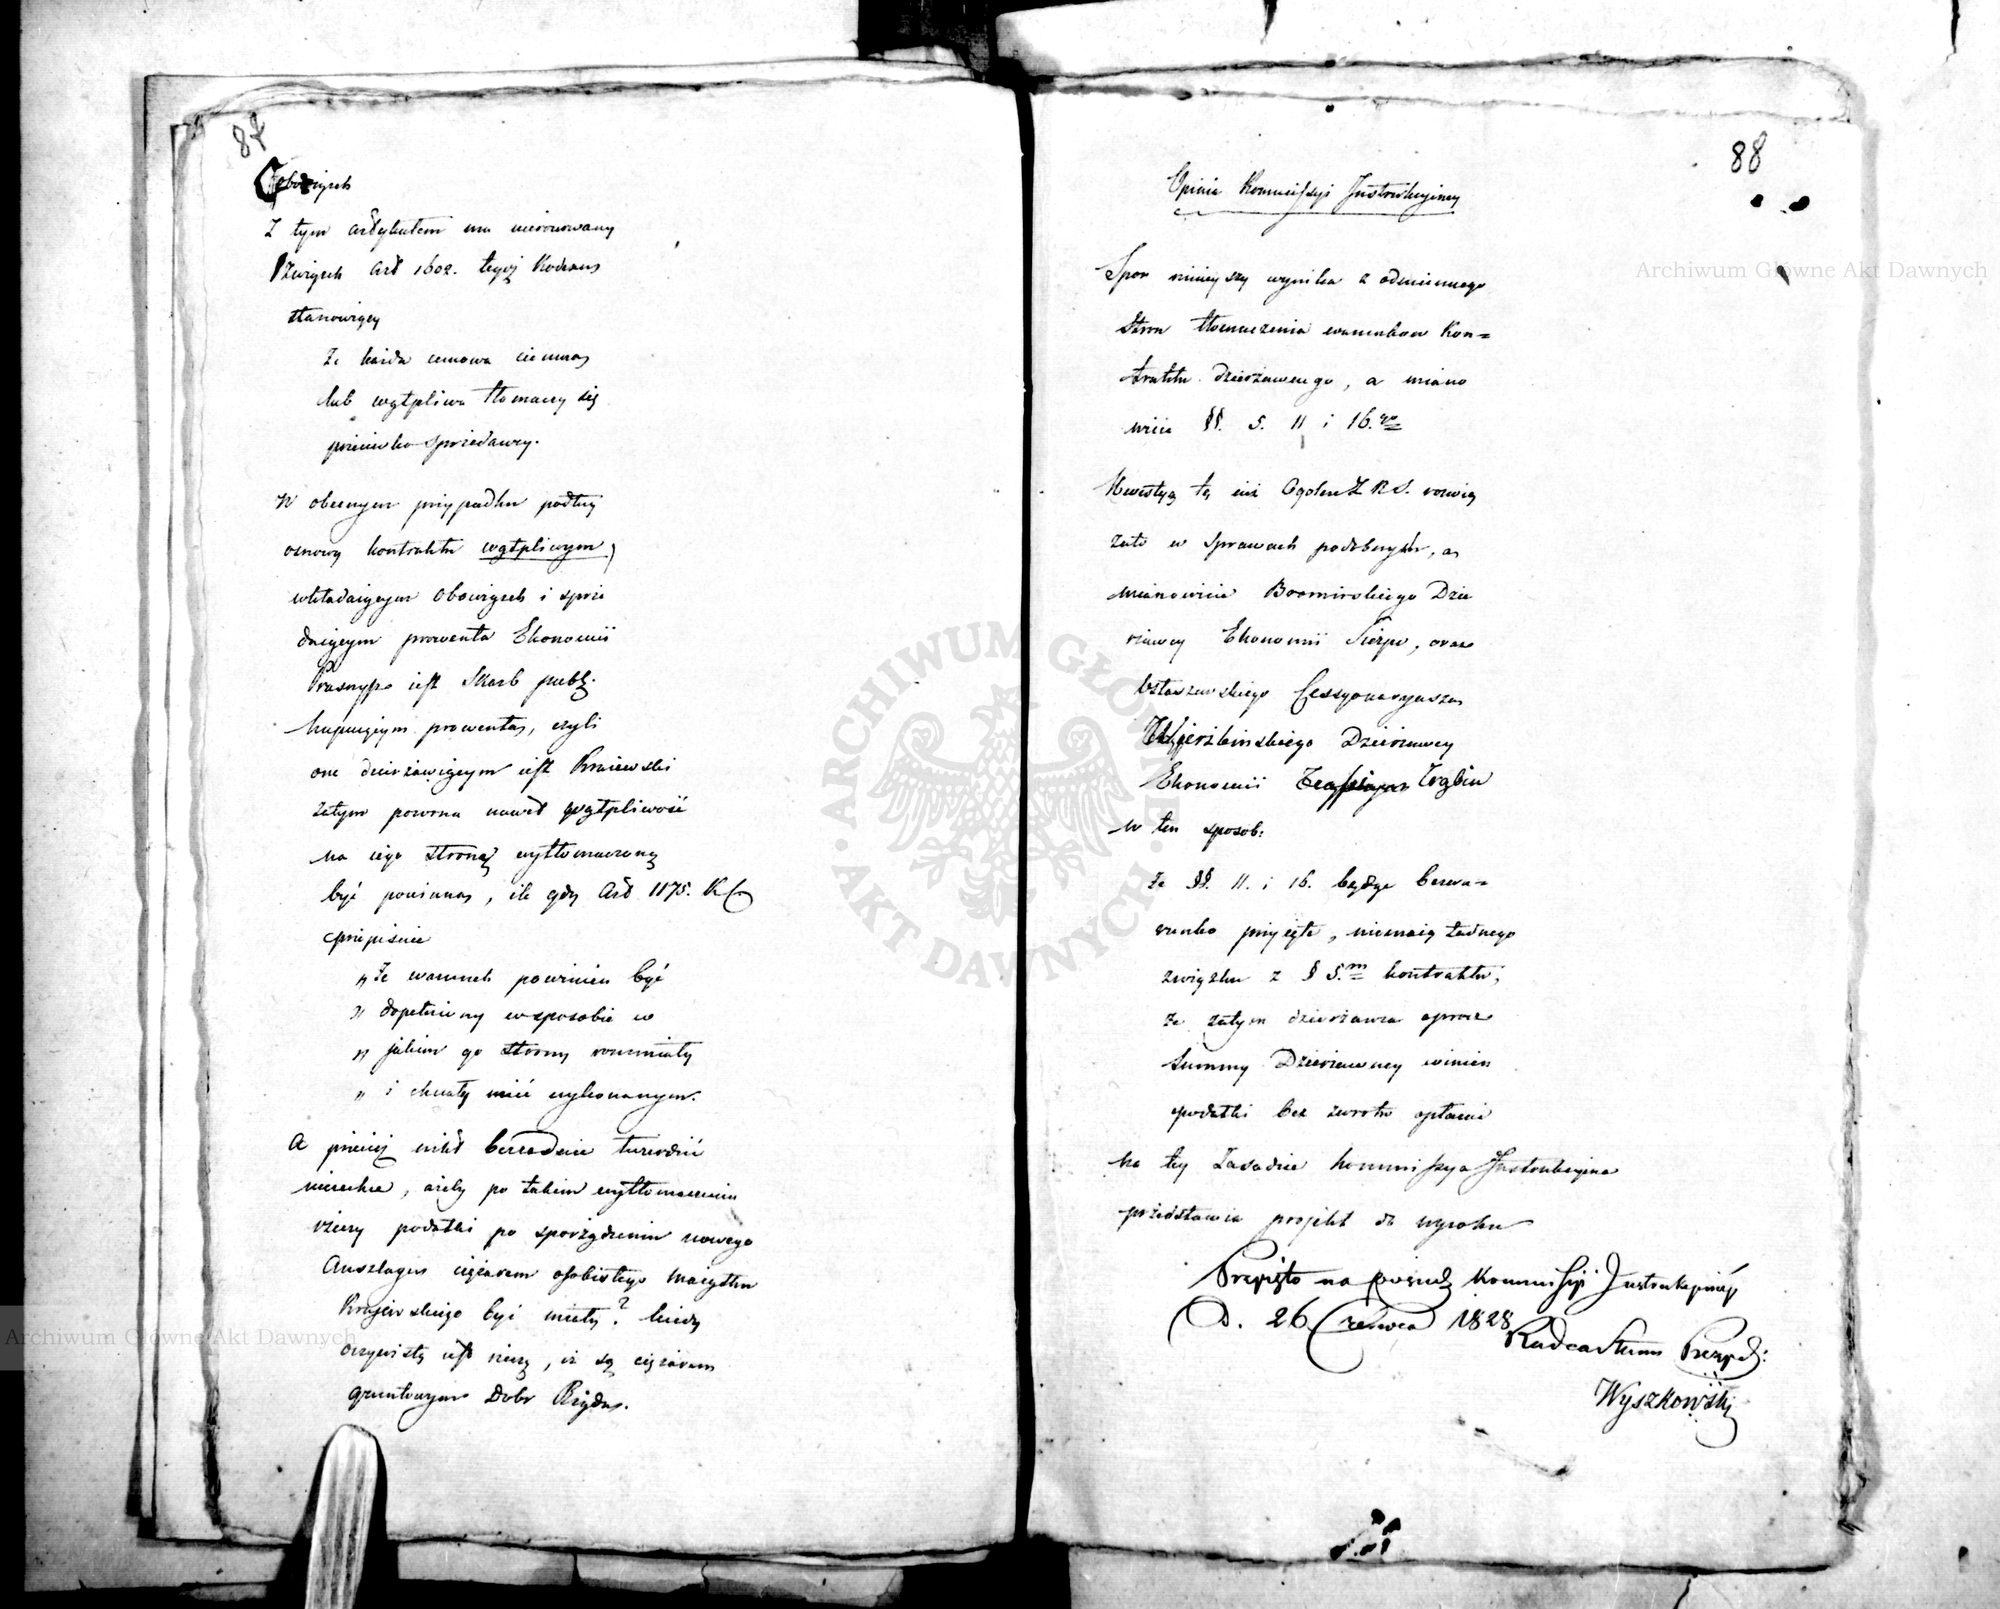 87
Z tym artykułem ma nierozerwany
Związek Art 1602. tegoż Kodexu
stanowiący
Że każda umowa ciemna
lub wątpliwa tłomaczy się
przeciwko sprzedawcy.
W obecnym przypadku podług
osnowy kontraktu wątpliwym,
wkładaiącym obowiązek i sprze
daiącym prowenta Ekonomii
Przasnysz iest Skarb publ.
kupuiącym prowenta, czyli
one dzierżawiącym iest Kraiewski
zatym powinna nawet wątpliwość
na iego stronę wytłomaczoną
być powinna, ile gdy Art 1175. KC
przepisuie
„ Że warunek powinien być
„ dopełniony w sposobie w
„ jakim go strony rozumiały
„ i chciały mieć wykonanym.
A przecież nikt bezzasadnie twierdzić
niezechce, ażeby po takim wytłomaczeniu
rzeczy podatki po sporządzeniu nowego
Anszlagu ciężarem osobistego maiątku
Krajewskiego być miały? kiedy
oczywistą iest rzeczą, iż są ciężarem
gruntowym Dobr Rządu.
88
Opinia Kommissyi Instrukcyiney
Spor ninieyszy wynika z odmiennego
Stron tłomaczenia warunkow Kon=
traktu dzierżawnego, a miano
wicie §§. 5. 11 i 16.go
Kwestyą tę iuż Ogolne Z. R. S. rozwią
zało w Sprawach podobnych, a
mianowicie Boomirskiego Dzie
rżawcy Ekonomii Sierpc, oraz
Cessyonaryusza
Dzierżawcy
Ekonomii
w ten sposob:
Że §§. 11. i 16. będąc bezwa=
runko przyięte, niemaią żadnego
związku z § 5.m kontraktu,
że zatym dzierżawca oprocz
Summy Dzierżawney winien
podatki bez zwrotu opłacać
Na tey Zasadzie Kommissya Instrukcyina
przedstawia projekt do wyroku
Przyięto na posiedz Kommissyi Instrukcyiney
D. 26 Czerwca 1828
Radca Stanu Prezyd:
Wyszkowski
Archiwum Główne Akt Dawnych
Archiwum Główne Akt Dawnych
ARCHIWUM GŁÓWNE · AKT DAWNYCH ·